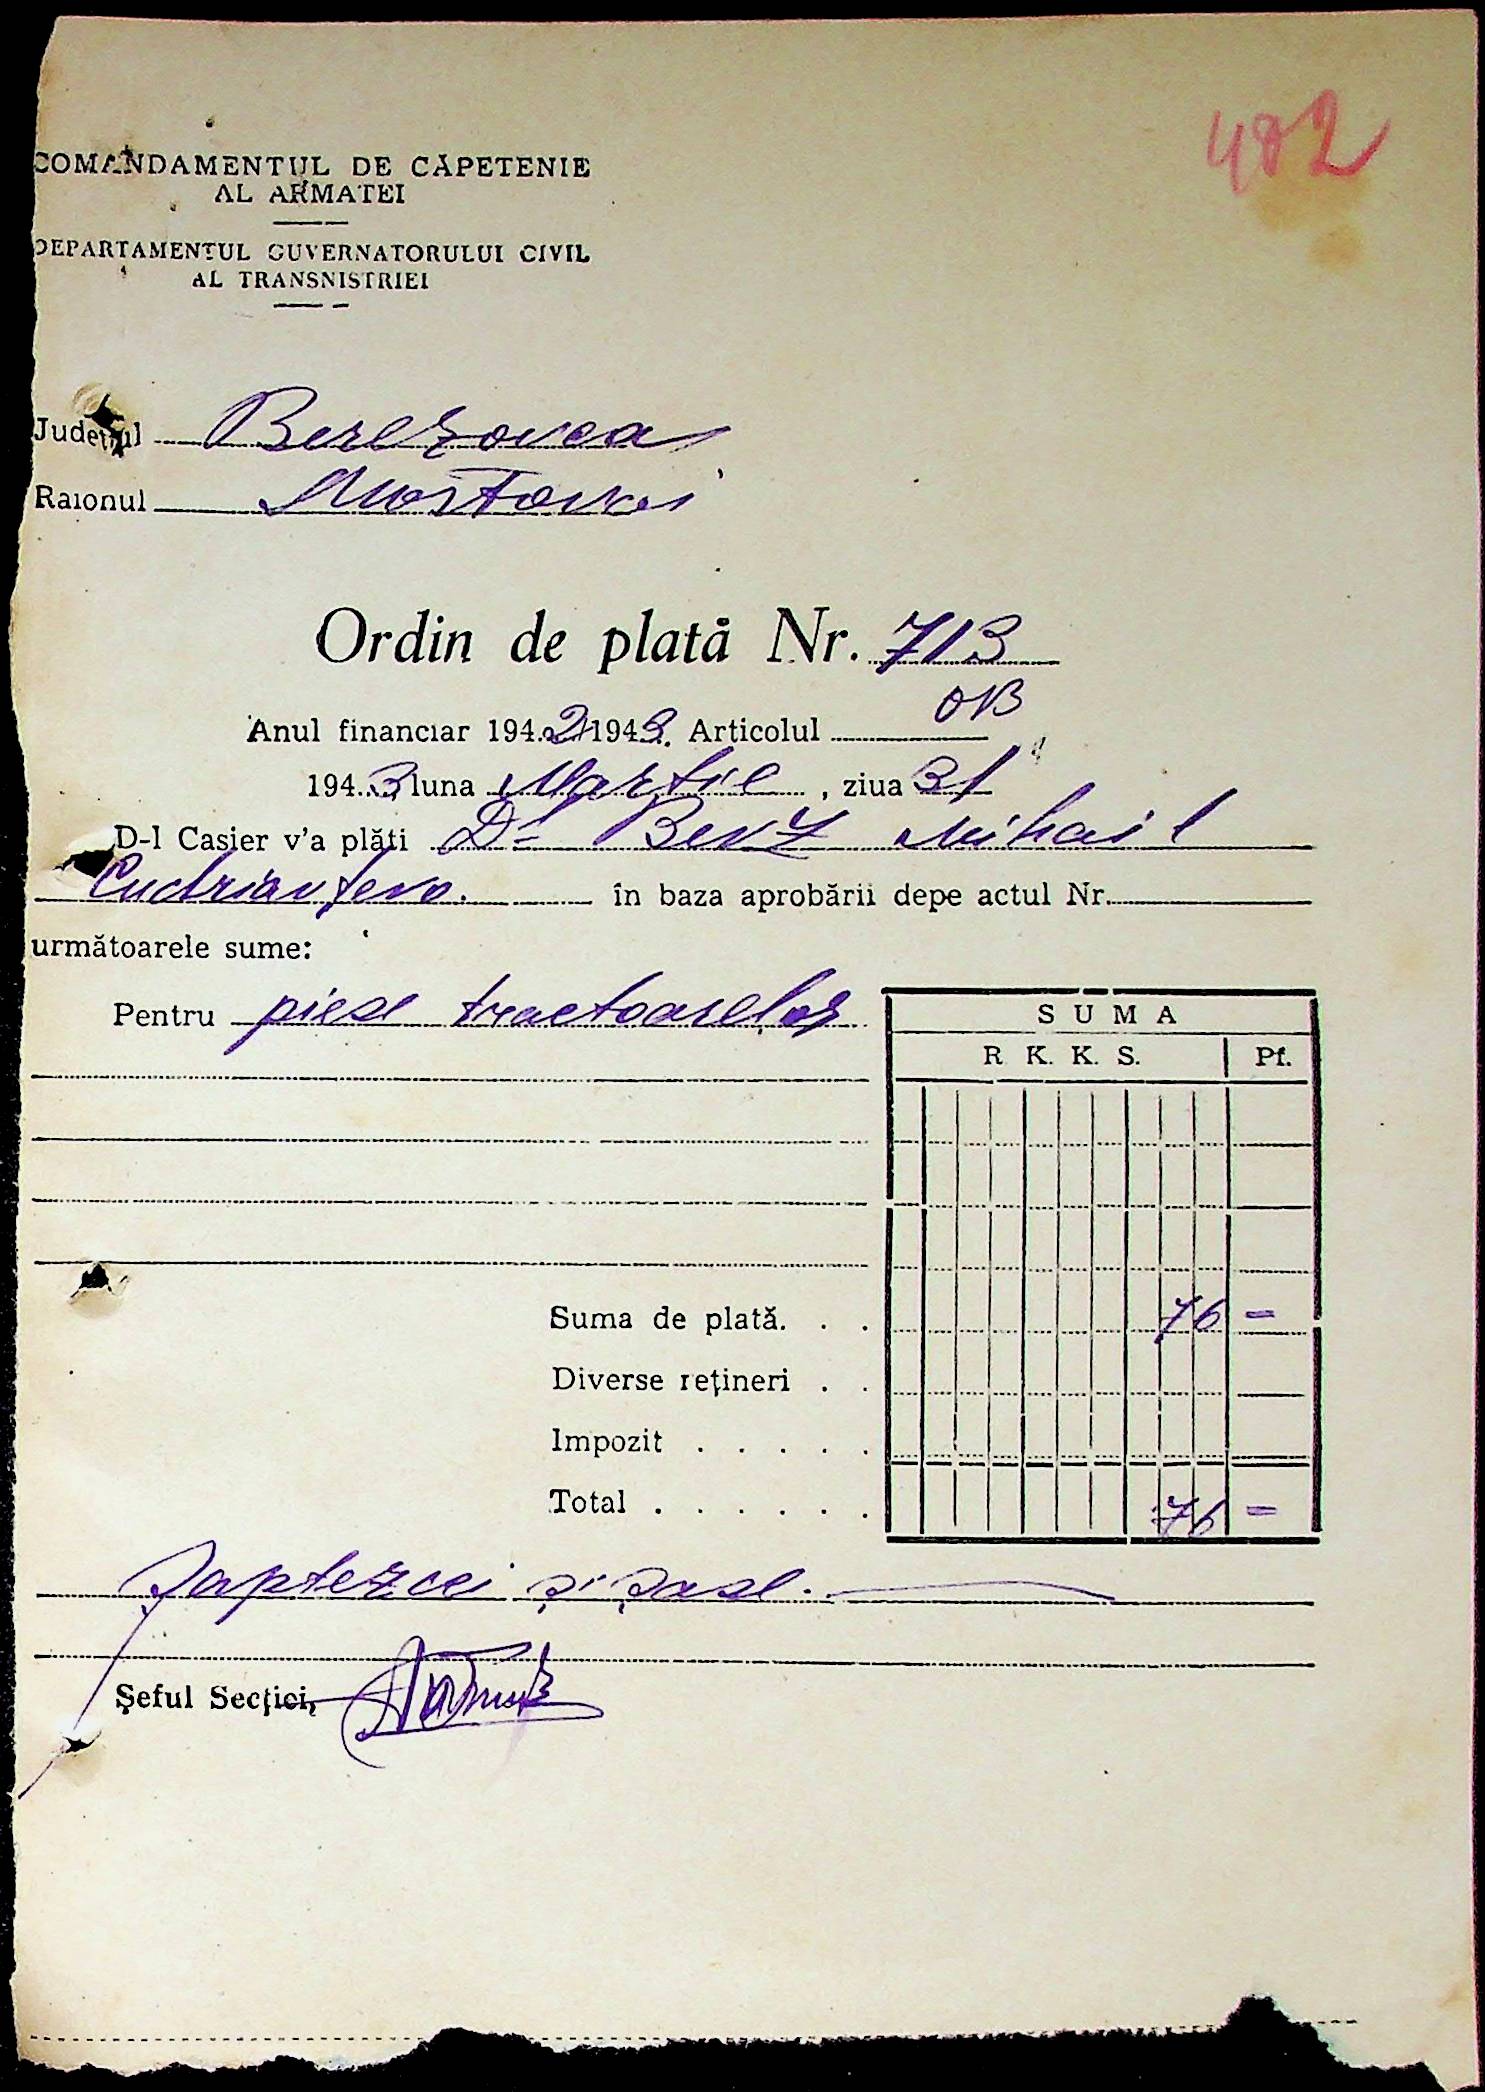 402
COMANDAMENTUL DE CĂPETENIE
AL ARMATEI
DEPARTAMENTUL GUVERNATORULUI CIVIL
AL TRANSNISTRIEI
Județul Berezovca
Raionul Mostovoi
Ordin de plată Nr. 713
Anul financiar 1942/1943. Articolul OB
1943 luna Martie, ziua 31
D-l Casier v'a plăti Dl Benz Mihail
în baza aprobării depe actul Nr.
următoarele sume:
Pentru piese tractoarelor
SUMA
R. K. K. S. Pf.
Suma de plată. . . 76 =
Diverse rețineri . .
Impozit . . . . .
Total . . . . . . 76 =
Șaptezeci și șase.
Șeful Secției,